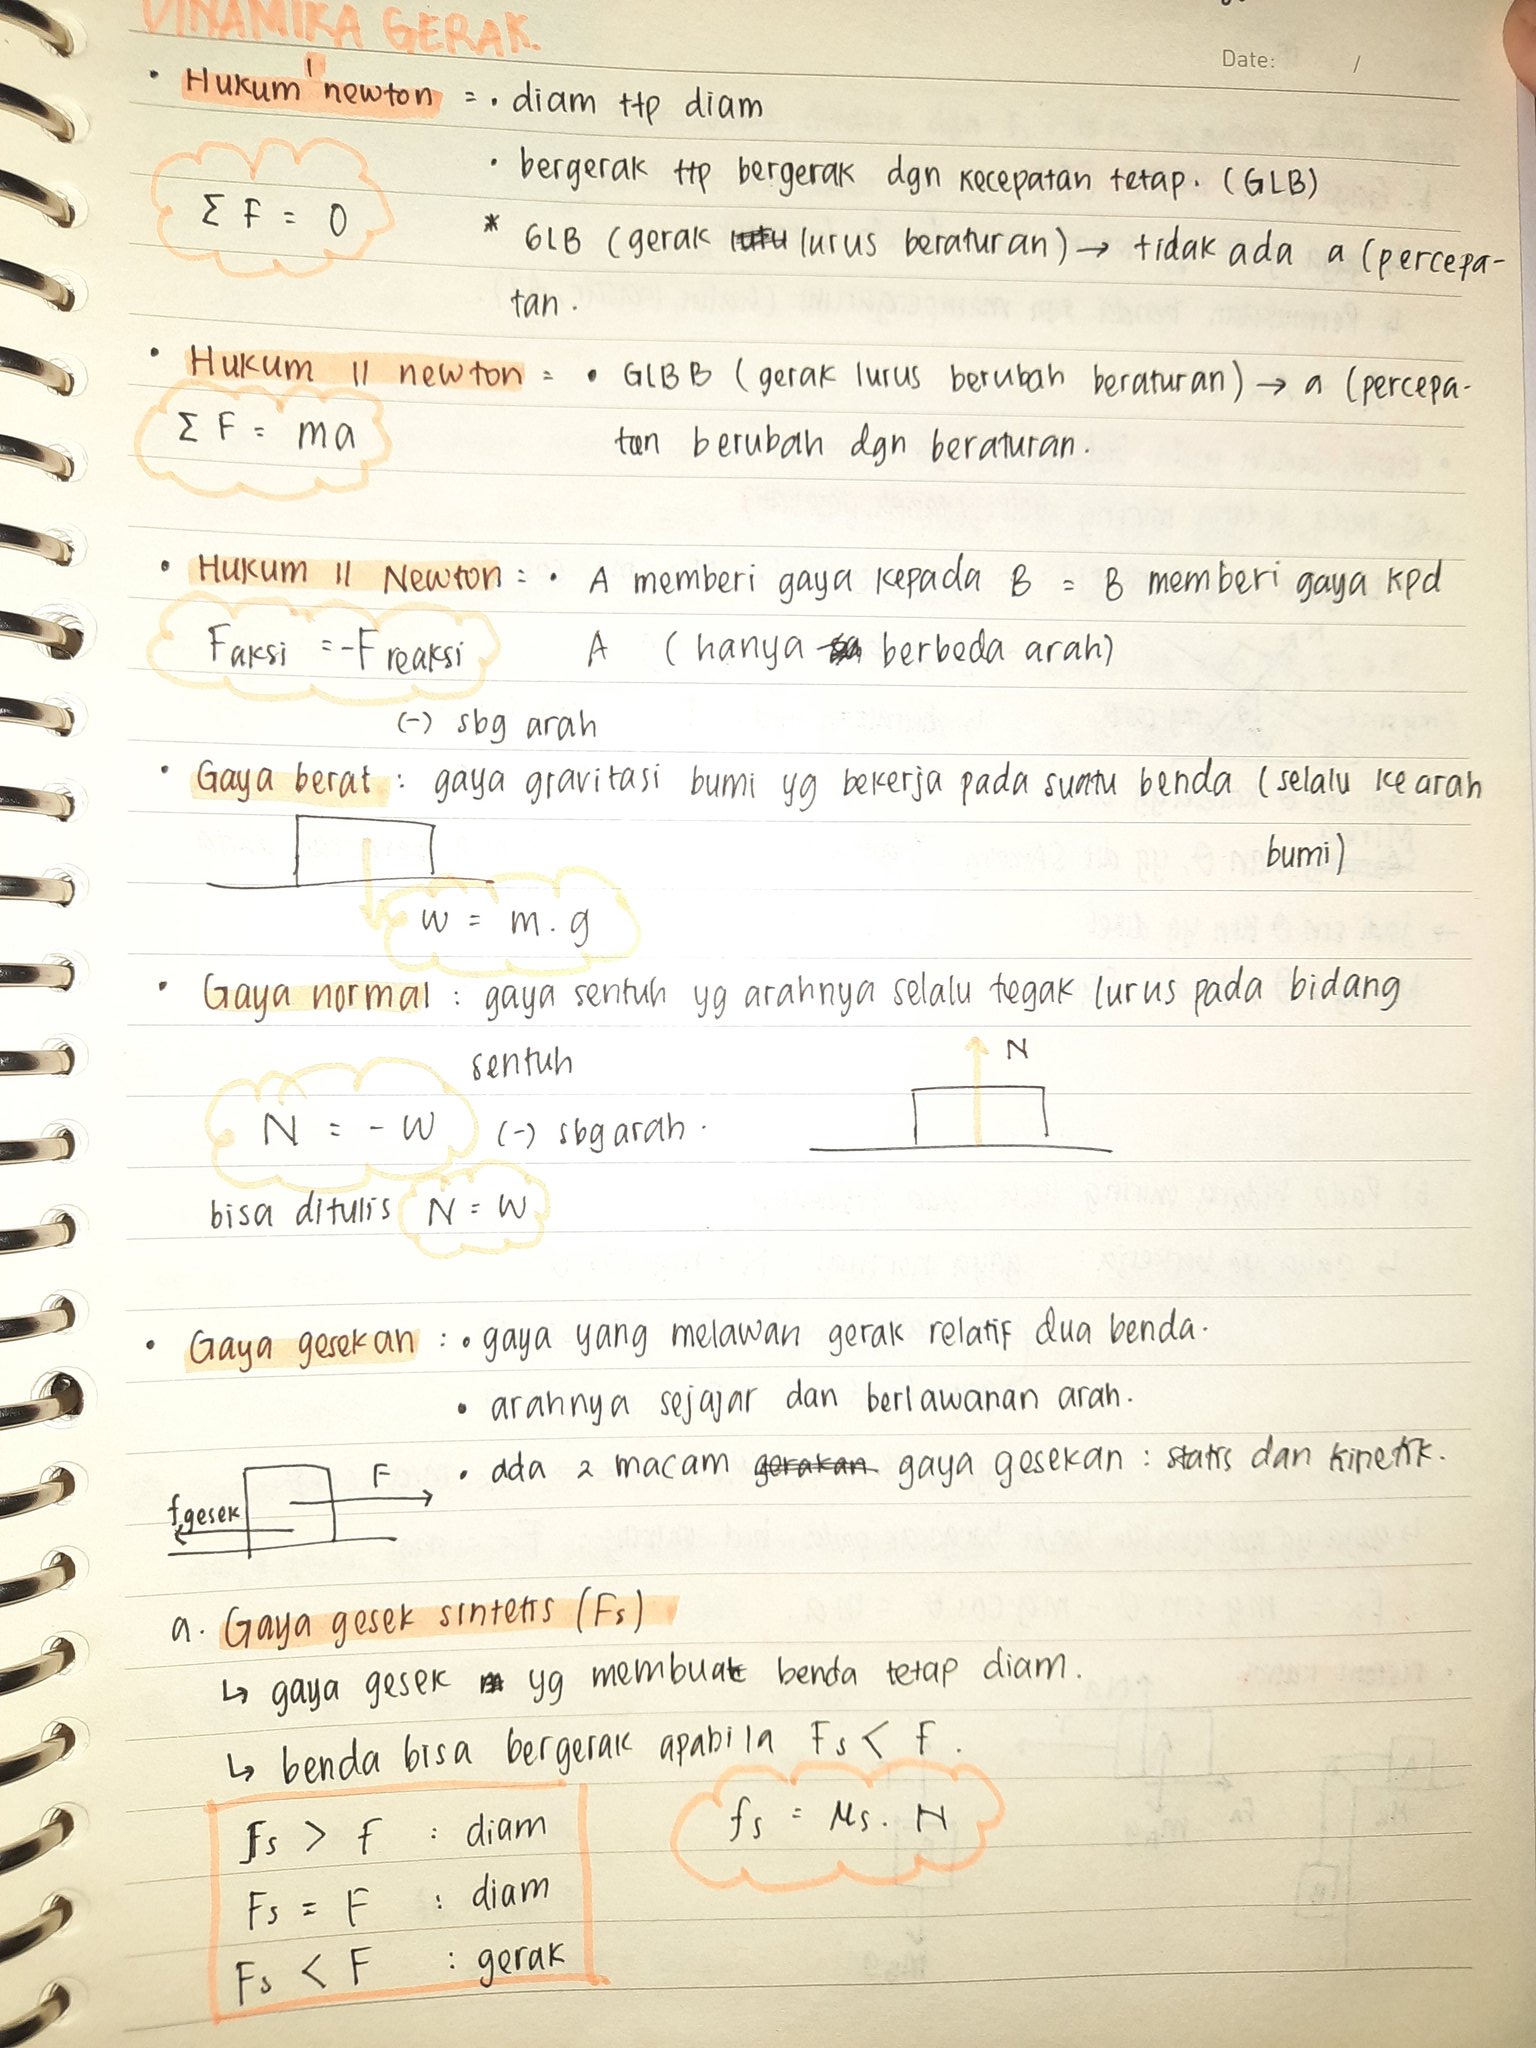 DINAMIKA GERAK.
Date: /
• Hukum I newton = • diam ttp diam
• bergerak ttp bergerak dgn kecepatan tetap. (GLB)
Σ F = 0
* GLB (gerak lurus beraturan) → tidak ada a (percepa-
tan.
• Hukum II newton = • GLBB (gerak lurus berubah beraturan) → a (percepa-
Σ F = ma
tan berubah dgn beraturan.
• Hukum II Newton = • A memberi gaya kepada B = B memberi gaya kpd
Faksi = -Freaksi
A (hanya berbeda arah)
(-) sbg arah
• Gaya berat : gaya gravitasi bumi yg bekerja pada suatu benda (selalu ke arah
bumi)
w = m.g
• Gaya normal : gaya sentuh yg arahnya selalu tegak lurus pada bidang
sentuh
N
N = - W (-) sbg arah.
bisa ditulis N = W
• Gaya gesekan : • gaya yang melawan gerak relatif dua benda.
• arahnya sejajar dan berlawanan arah.
• ada 2 macam gerakan gaya gesekan : statis dan kinetik.
F
fgesek
a. Gaya gesek sintetis (Fs)
↳ gaya gesek yg membuat benda tetap diam.
↳ benda bisa bergerak apabila Fs < F.
Fs > F : diam
fs = μs. N
Fs = F : diam
Fs < F : gerak